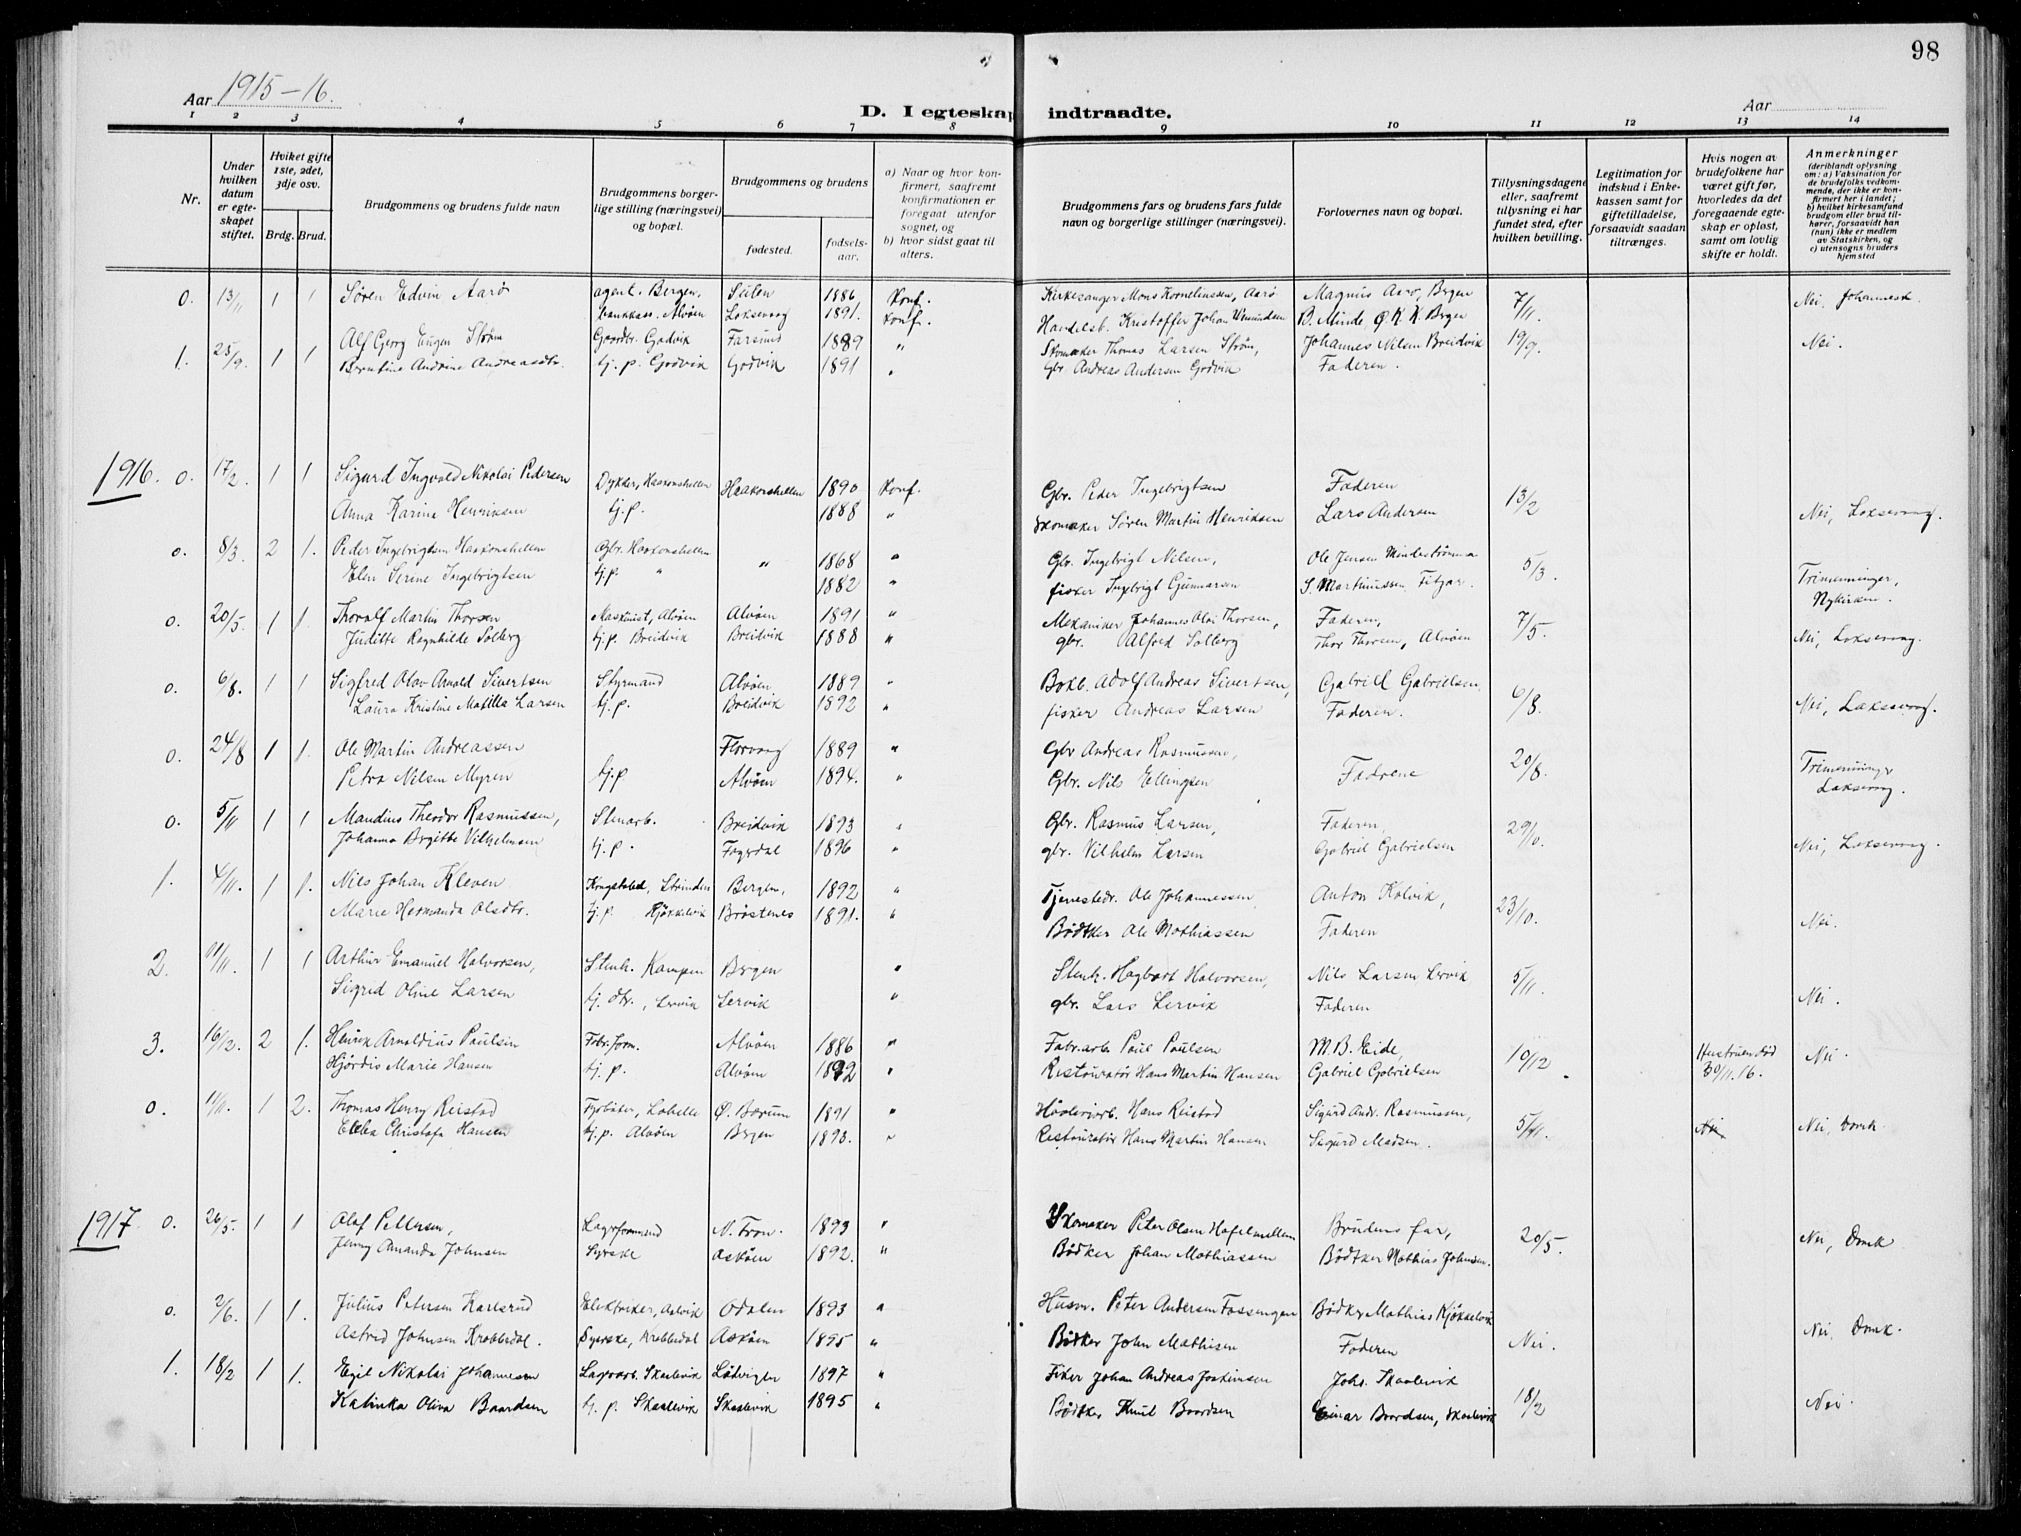 98
Aar 1915-16.
D. I egteskap indtraadte.
Aar
1 2 3 4 5 6 7 8 9 10 11 12 13 14
Nr.
Under hvilken datum er egteskapet stiftet.
Hvilket gifte 1ste, 2det, 3dje osv.
Brdg. Brud.
Brudgommens og brudens fulde navn
Brudgommens borgerlige stilling (næringsvei) og bopæl.
Brudgommens og brudens
fødested.
fødselsaar.
a) Naar og hvor konfirmert, saafremt konfirmationen er foregaat utenfor sognet, og
b) hvor sidst gaat til alters.
Brudgommens fars og brudens fars fulde navn og borgerlige stillinger (næringsvei).
Forlovernes navn og bopæl.
Tillysningsdagene eller, saafremt tillysning ei har fundet sted, efter hvilken bevilling.
Legitimation for indskud i Enkekassen samt for giftetilladelse, forsaavidt saadan tiltrænges.
Hvis nogen av brudefolkene har været gift før, hvorledes da det foregaaende egteskap er opløst, samt om lovlig skifte er holdt.
Anmerkninger
(deriblandt oplysning om: a) Vaksination for de brudefolks vedkommende, der ikke er konfirmert her i landet; b) hvilket kirkesamfund brudgom eller brud tilhører, forsaavidt han (hun) ikke er medlem av Statskirken, og c) utensogns bruders hjemsted
0. 13/11 1 1 Søren Edvin Aarø agent. Bergen. 1886 Konf. Kirkesanger Mons Kornelinssen, Aarø Magnus Aarø, Bergen 7/11. Nei, Johannesk.
Alvøen Laksevaag 1891. Konf. Handelsb. Kristoffer Johan B. Minde, Ø. K. K. Bergen
1. 25/9. 1 1 Alf Georg Eugen Strøm Gaardbr. Godvik Farsund 1889 " Skomaker Thomas Larsen Strøm, Johannes Nilsen Breidvik 19/9. Nei.
Berntine Andrine Andreasdtr. tj. p. Godvik Godvik 1891 " Gbr. Andreas Andersen Godvik Faderen.
1916. 0. 17/2. 1 1 Sigurd Ingvald Nikolai Pedersen Dykker, Haakonshellen Haakonshellen 1890 Konf. Gbr. Peder Ingebrigtsen Faderen 13/2
Anna Karine Henriksen tj. p. 1888 " Skomaker Søren Martin Henriksen Lars Andersen Nei, Laksevaag.
0. 8/3. 2 1. Peder Ingebrigtsen Haakonshellen Gbr. Haakonshellen " 1868 " Gbr. Ingebrigt Nilsen, Ole Jensen 5/3.
Elen Serine Ingebrigtsen tj. p. " 1882 " fisker Ingebrigt Gunnarsen S. Martinussen Fitjar. Trimenninger, Nykirken.
0. 20/5. 1 1. Thoralf Martin Thorsen Maskinist, Alvøen Alvøen 1891 " Mekaniker Johannes Olai Thorsen, Faderen, 7/5.
Juditte Ragnhilde Solberg tj. p. Breidvik Breidvik 1888 " gbr. Alfred Solberg Thor Thorsen, Alvøen Nei, Laksevaag.
0. 6/8. 1 1 Sigfred Olav Arnold Sivertsen Styrmand Alvøen. 1889 " Bokb. Adolf Andreas Sivertsen, Gabriel Gabrielsen, 6/8.
Laura Kristine Matilla Larsen tj. p. Breidvik 1892 " fisker Andreas Larsen Faderen. Nei, Laksevaag.
0. 24/8 1 1. Ole Martin Andreassen Florvaag 1889 " Gbr Andreas Rasmussen, 20/8.
Petra Nilsen Myren tj. p Alvøen 1894. " Gbr. Nils Ellingsen Fædrene Trimenninger Laksevaag.
0. 5/11 1 1 Mandius Theodor Rasmussen, Stenarb. Breidvik 1893 " Gbr. Rasmus Larsen, Faderen, 29/10.
Johanna Brgitte Vilhelmsen tj. p. Fagerdal 1896 " gbr. Vilhelm Larsen Gabriel Gabrielsen Nei, Laksevaag.
1. 4/11. 1 1. Nils Johan Kleven Strinden Bergen, 1892 " Tjenestedr. Ole Johannessen Anton Kolvik, 23/10.
Marie Hermanda Olsdtr. tj. p. Kjøkkelvik Brøstenes 1891. " Bødtker Ole Mathiassen Faderen Nei.
2. 11/11. 1 1 Arthur Emanuel Halvorsen, Stenh. Kampen Bergen " Stenh. Hagbart Halvorsen, Nils Larsen Lervik 5/11.
Sigrid Oline Larsen tj. dtr., Lervik Lervik " gbr. Lars Lervik Faderen Nei.
3. 16/12. 2 1. Henrik Arnoldius Paulsen Fabr. form. Alvøen 1886 " Fabr. arb. Paul Paulsen M. B. Eide, 10/12. Hustruen død 30/11.16. Nei.
Hjørdis Marie Hansen tj. p. Alvøen 1892 " Restauratør Hans Martin Hansen Gabriel Gabrielsen
0. 11/11. 1 2. Thomas Henry Reistad Fyrbøter, Ø. Bærum 1891 " Hans Reistad Sigurd Andr. Rasmussen, 5/11.
Ebba Christofa Hansen tj. p. Alvøen Bergen 1893. " Restauratør Hans Martin Hansen Sigurd Madsen. Nei, Domk.
1917. 0. 26/5. 1 1 Olaf Pettersen, Lagerformand N. Fron. 1893 " Skomaker Peter Olsen Brudens far, 20/5.
Jenny Amanda Johnsen Syerske Askøen 1892. " Bødker Johan Mathiassen Bødtker Mathias Johnsen. Nei, Domk
0. 2/6. 1 1. Julius Petersen Karlsrud Elektriker, Odalen 1893 " Husm. Peter Andersen Fossengen Bødker Mathias Kjøkkelvik
Astrid Johnsen Krabbedal. Syerske, Krabbedal Askøen 1895 " Bødker John Mathisen Faderen Nei. Nei, Domk.
1. 18/2 1 1. Egil Nikolai Johannesen Lagerarb. Skaalevik Lødingen 1897 " Fisker Johan Andreas Johs. Skaalevik 18/2
Katinka Oliva Baardsen tj. p. Skaalevik Skaalevik 1895 " Bødtker Knut Baardsen Einar Baardsen, Skaalevik Nei.